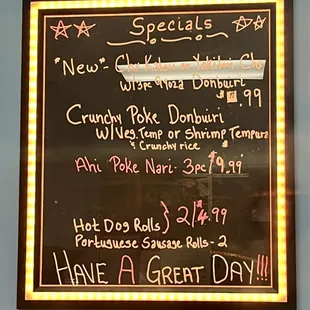 Specials
*New*-
w/3pc Gyoza Donburi
.99
Crunchy Poke Donburi
w/Veg. Temp or Shrimp Tempura
* Crunchy rice *
Ahi Poke Nari- 3pc $9.99
Hot Dog Rolls } 2/$4.99
Portuguese Sausage Rolls - 2
HAVE A GREAT DAY!!!